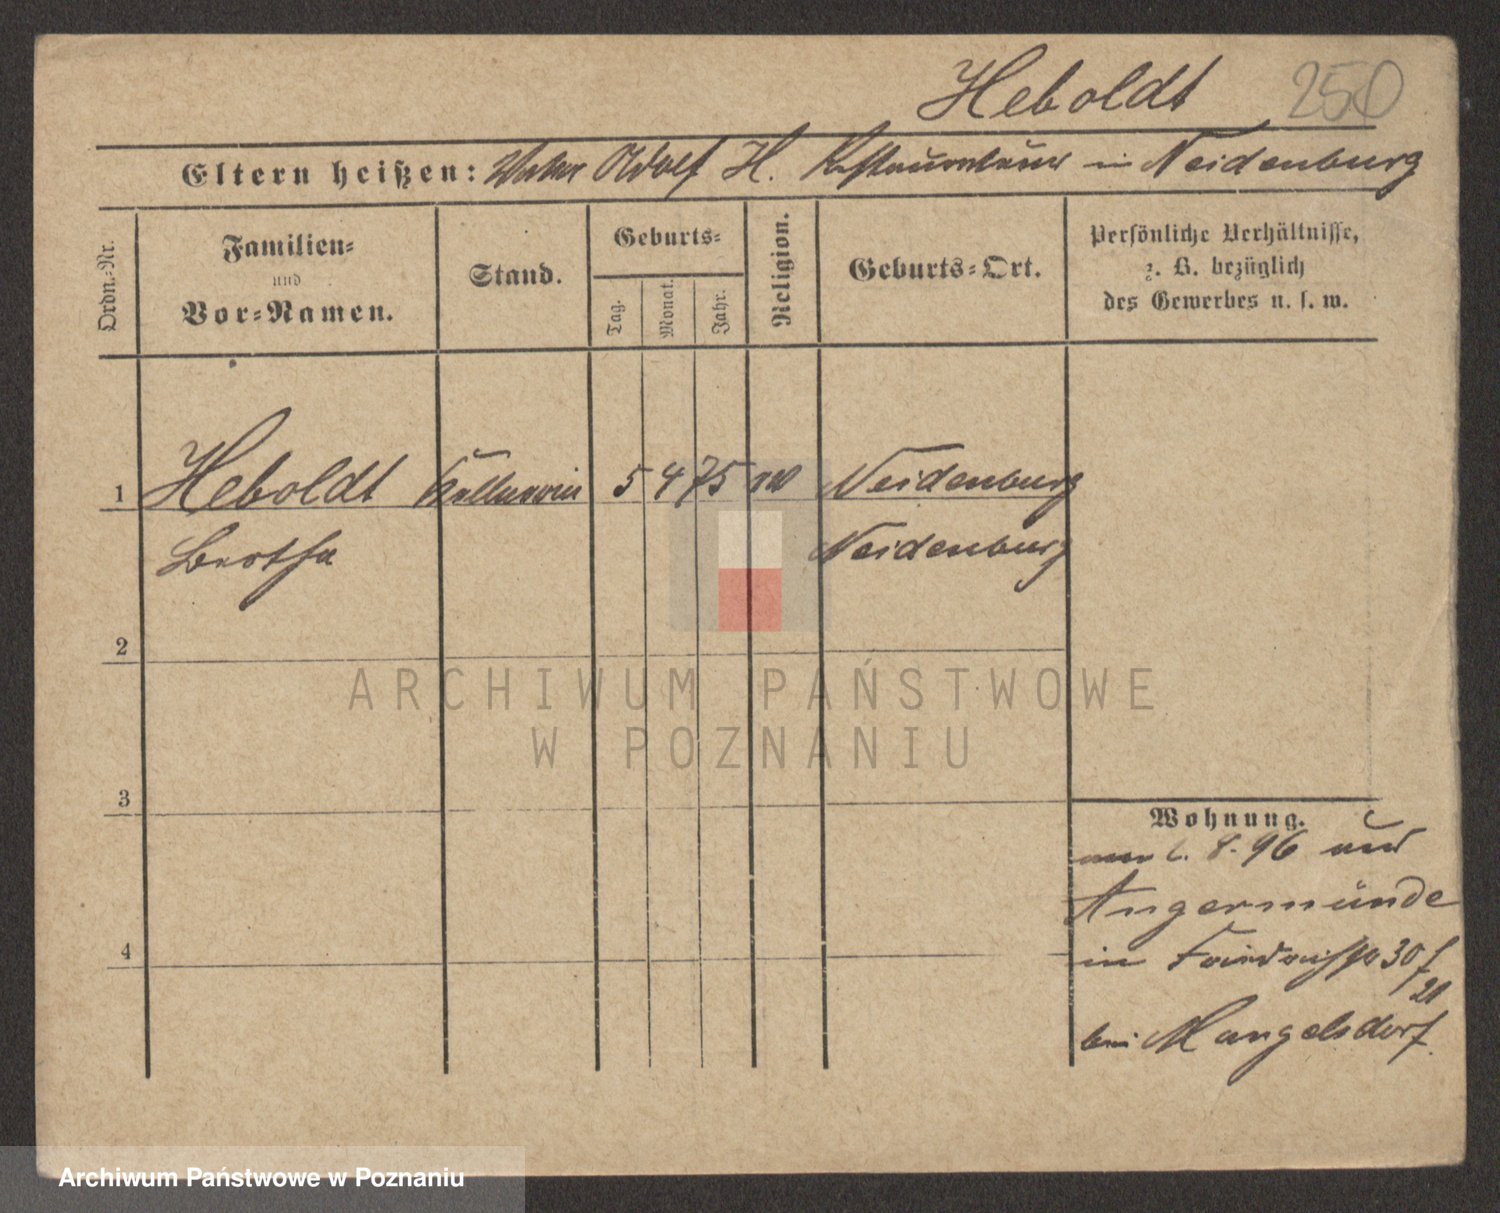 Heboldt 250
Eltern heißen: Vater Adolf H. Restaurateur in Neidenburg
Ordn.-Nr.
Familien-
und
Vor-Namen.
Stand.
Geburts-
Tag.
Monat.
Jahr.
Religion.
Geburts-Ort.
Persönliche Verhältnisse,
z. B. bezüglich
des Gewerbes u. s. w.
1 Heboldt Kellnerin 5 4 75 Neidenburg
Bertha Neidenburg
2
3
4
Wohnung.
8. 96 aus
Angermünde
in 30
20
bei Mangelsdorf.
ARCHIWUM PAŃSTWOWE
W POZNANIU
Archiwum Państwowe w Poznaniu